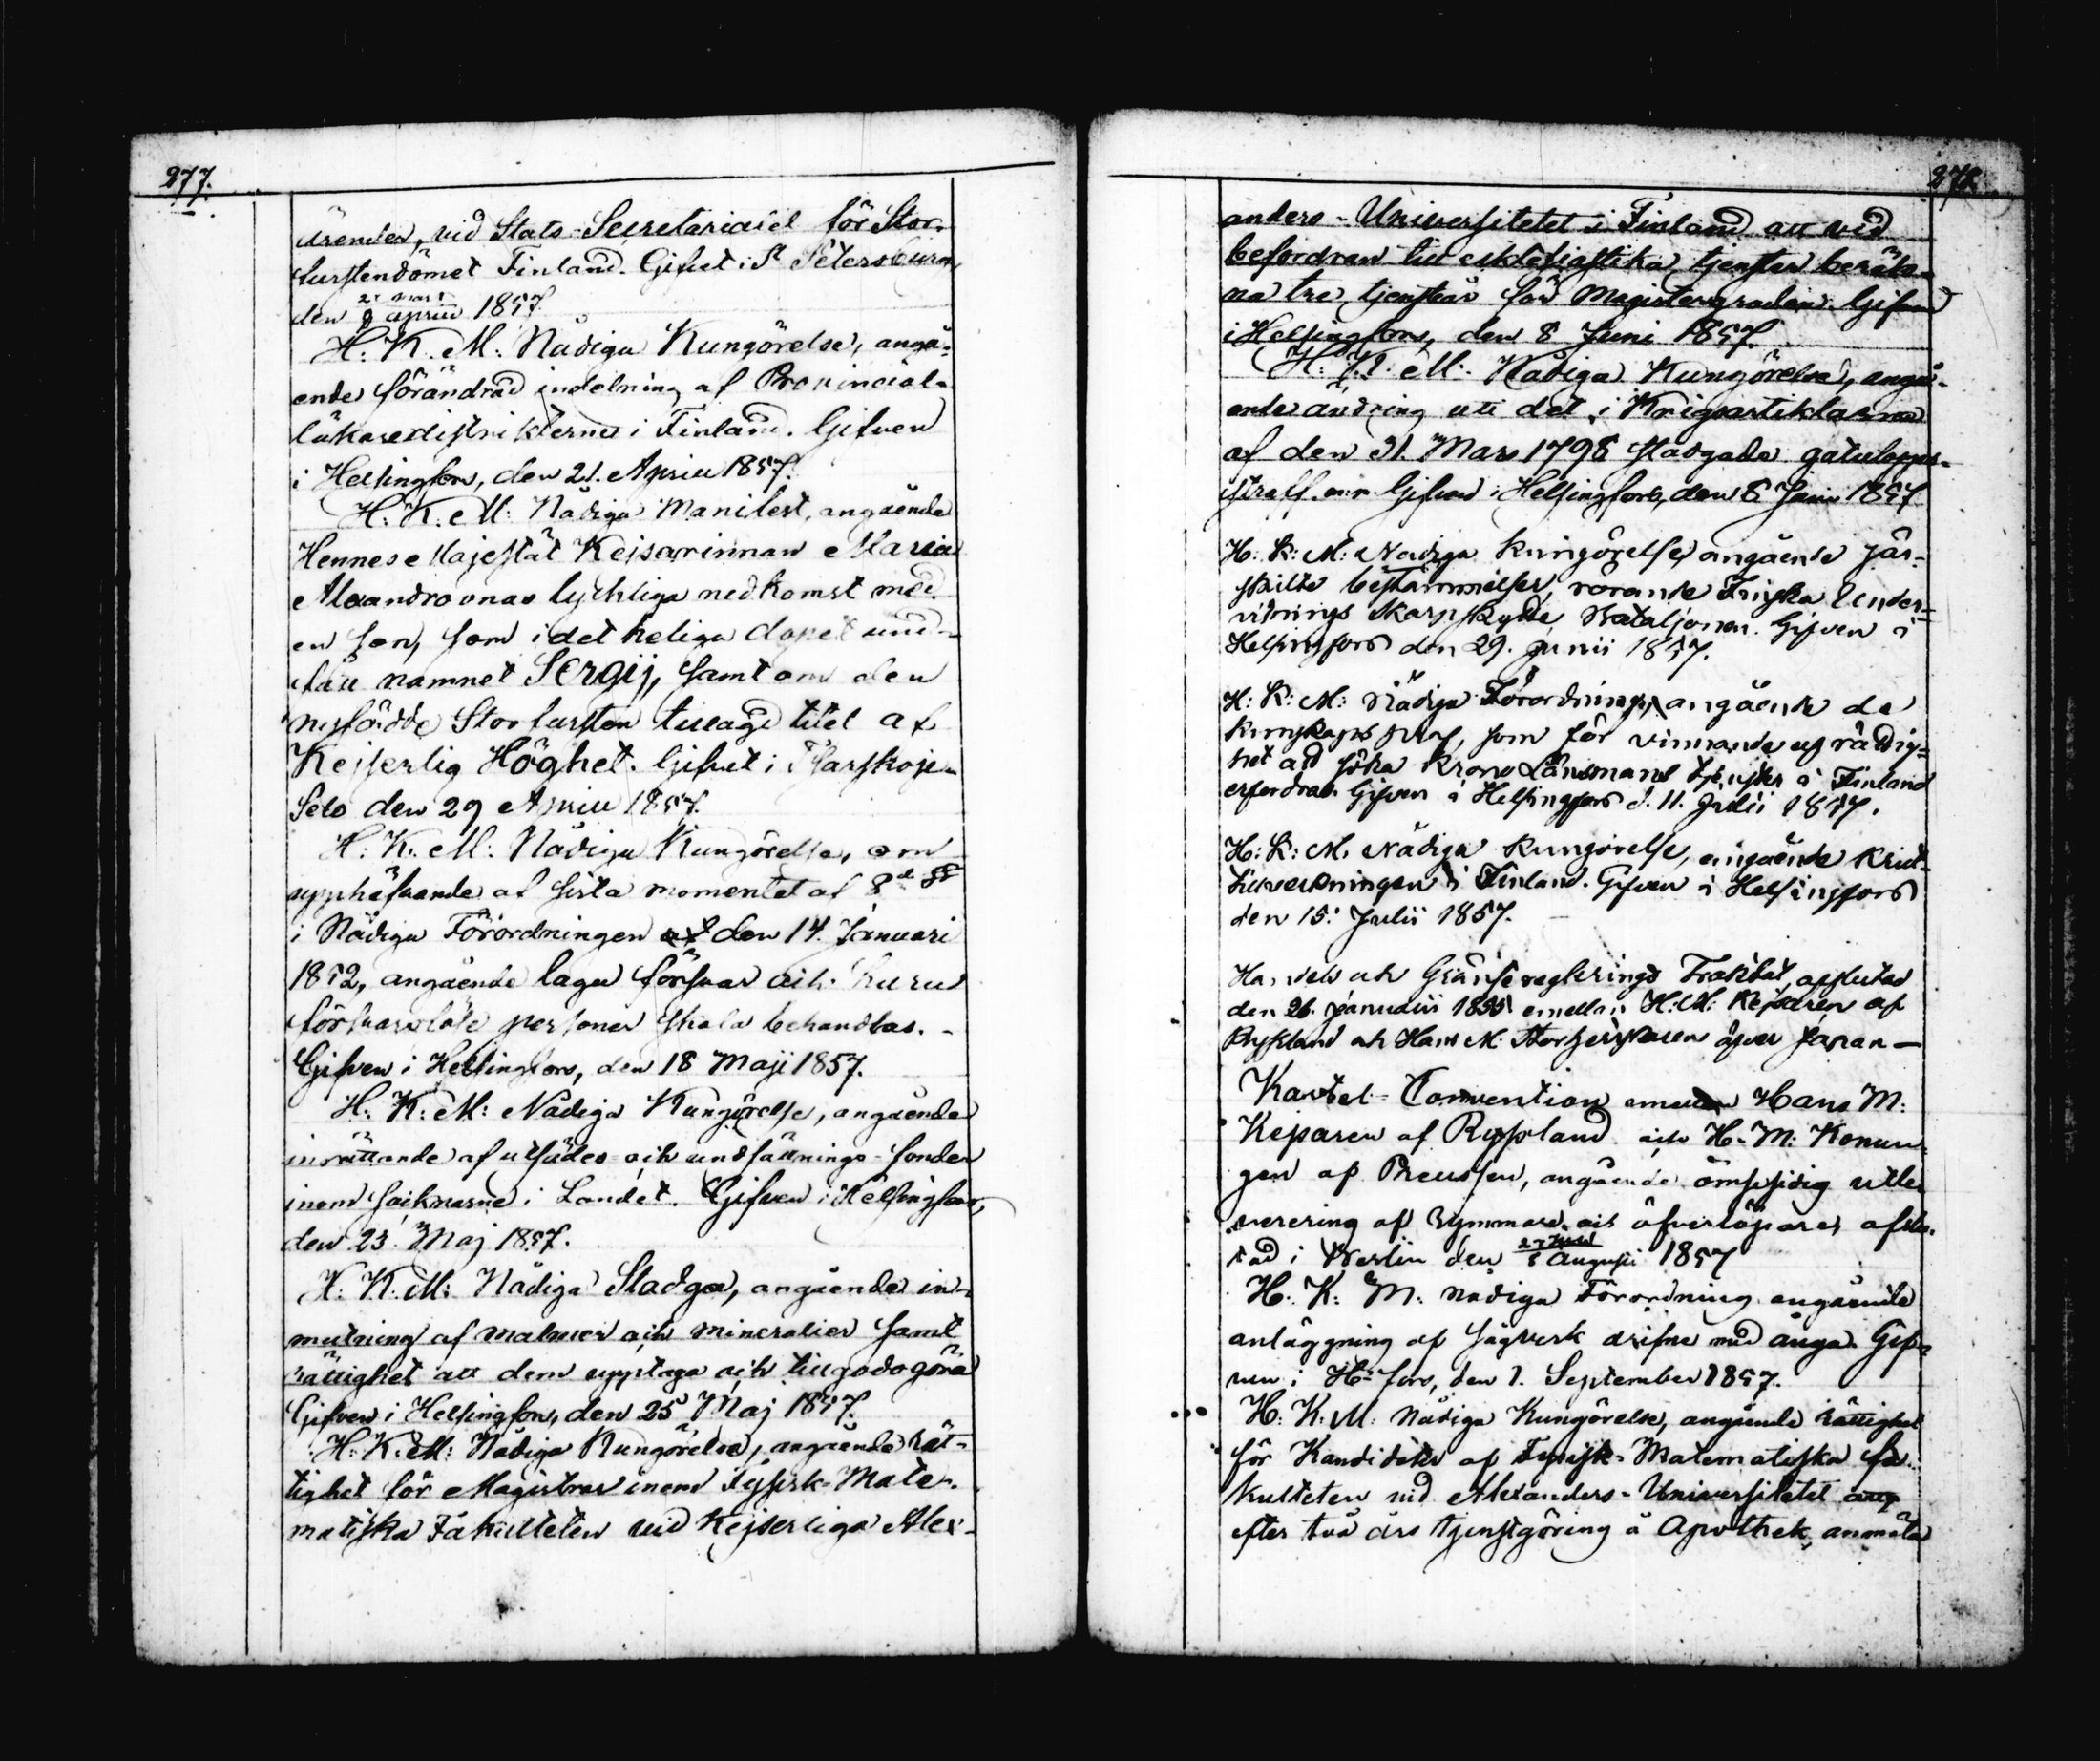 277.
ärender, vid Stats-Secretariatet för Stor-
furstendömet Finland. Gifvet i St Petersburg,
den 27 Mars
8 April 1857.
H: K. M: Nådiga Kungörelse, angå-
ende förändrad indelning af Provincial-
läkaredistrikterne i Finland. Gifven
i Helsingfors, den 21. April 1857.
H: K. M: Nådiga Manifest, angående
Hennes Majestät Kejsarinnan Maria
Alexandrovnas lyckliga nedkomst med
en son, som i det heliga dopet und-
fått namnet Sergij, samt om den
nyfödde Storfursten tillagd titel af
Kejserlig Höghet. Gifvet i Tsarskoje-
Selo den 29 April 1857.
H: K. M: Nådiga Kungörelse, om
upphäfvande af sista momentet af 8de §§
i Nådiga Förordningen af den 14. Januari
1852, angående laga försvar och huru
försvarslöse personer skola behandlas. -
Gifven i Helsingfors, den 18 Maji 1857.
H: K: M: Nådiga Kungörelse, angående
inrättande af utsädes och undsättnings-fonder
inom socknarne i Landet. Gifven i Helsingfors,
den 23. Maj 1857.
H: K. M: Nådiga Stadga, angående in-
mutning af malmer och mineralier samt
rättighet att dem upptaga och tillgodogöra
Gifven i Helsingfors, den 25 Maj 1857.
H: K. M: Nådiga Kungörelse, angående rät-
tighet för Magistrar inom Fysisk-Mate-
matiska Fakulteten vid Kejserliga Alex-
278.
anders-Universitetet i Finland att vid
befordran till eklesiastika tjenster beräk-
na tre tjensteår för Magistergraden. Gifven
i Helsingfors, den 8 Juni 1857.
H: K. M: Nådiga Kungörelse, angå-
ende ändring uti det i Krigsartiklarna
af den 31. Mars 1798 stadgade gatulopps-
straff. m.m. Gifven i Helsingfors, den 8 Juni 1857
H: K: M: Nådiga Kungörelse angående sär-
skilte bestämmelser, rörande Finska Under-
visnings Skarpskytte Bataljonen. Gifven i
Helsingfors den 29. Junii 1857.
H: K: M: Nådiga Förordning, angående de
kunskaps prof, som för vinnande af rättig-
het att söka Krono Länsmans tjenster i Finland
erfordras. Gifven i Helsingfors d. 11. Julii 1857.
H: K: M. Nådiga Kungörelse, angående Krut-
tillverkningen i Finland. Gifven i Helsingfors
den 15. Julii 1857.
Handels och Gränsereglerings Traktat, afslutad
den 26. Januarii 1855 emellan H: M: Kejsaren af
Ryssland och Hans M. Storherrskaren öfver Japan —
Kartel-Convention emellan Hans M:
Kejsaren af Ryssland och H. M: Konun-
gen af Preussen, angående ömsesidig utle-
verering af rymmare och öfverlöpare, afslu-
tad i Berlin den 27 Juli
8 Augusti 1857
H: K: M: nådiga Förordning angående
anläggning af sågverk drifne med ånga. Gif-
ven i H:fors, den 1. September 1857.
H: K: M: Nådiga Kungörelse, angående rättighet
för Kandidater af Fysisk-Matematiska fa-
kulteten vid Alexanders-Universitetet att
efter två års tjenstgöring å Apothek, anmäla